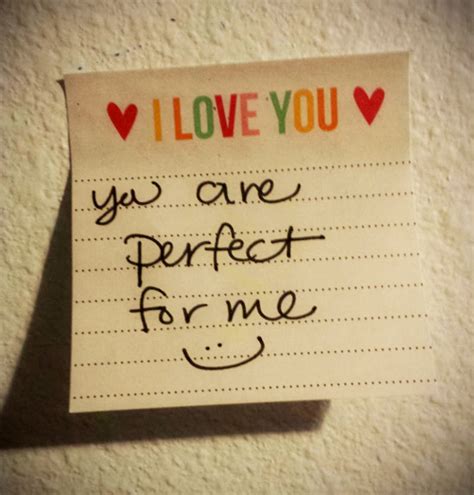 ♥ I LOVE YOU ♥
you are
perfect
for me
:)